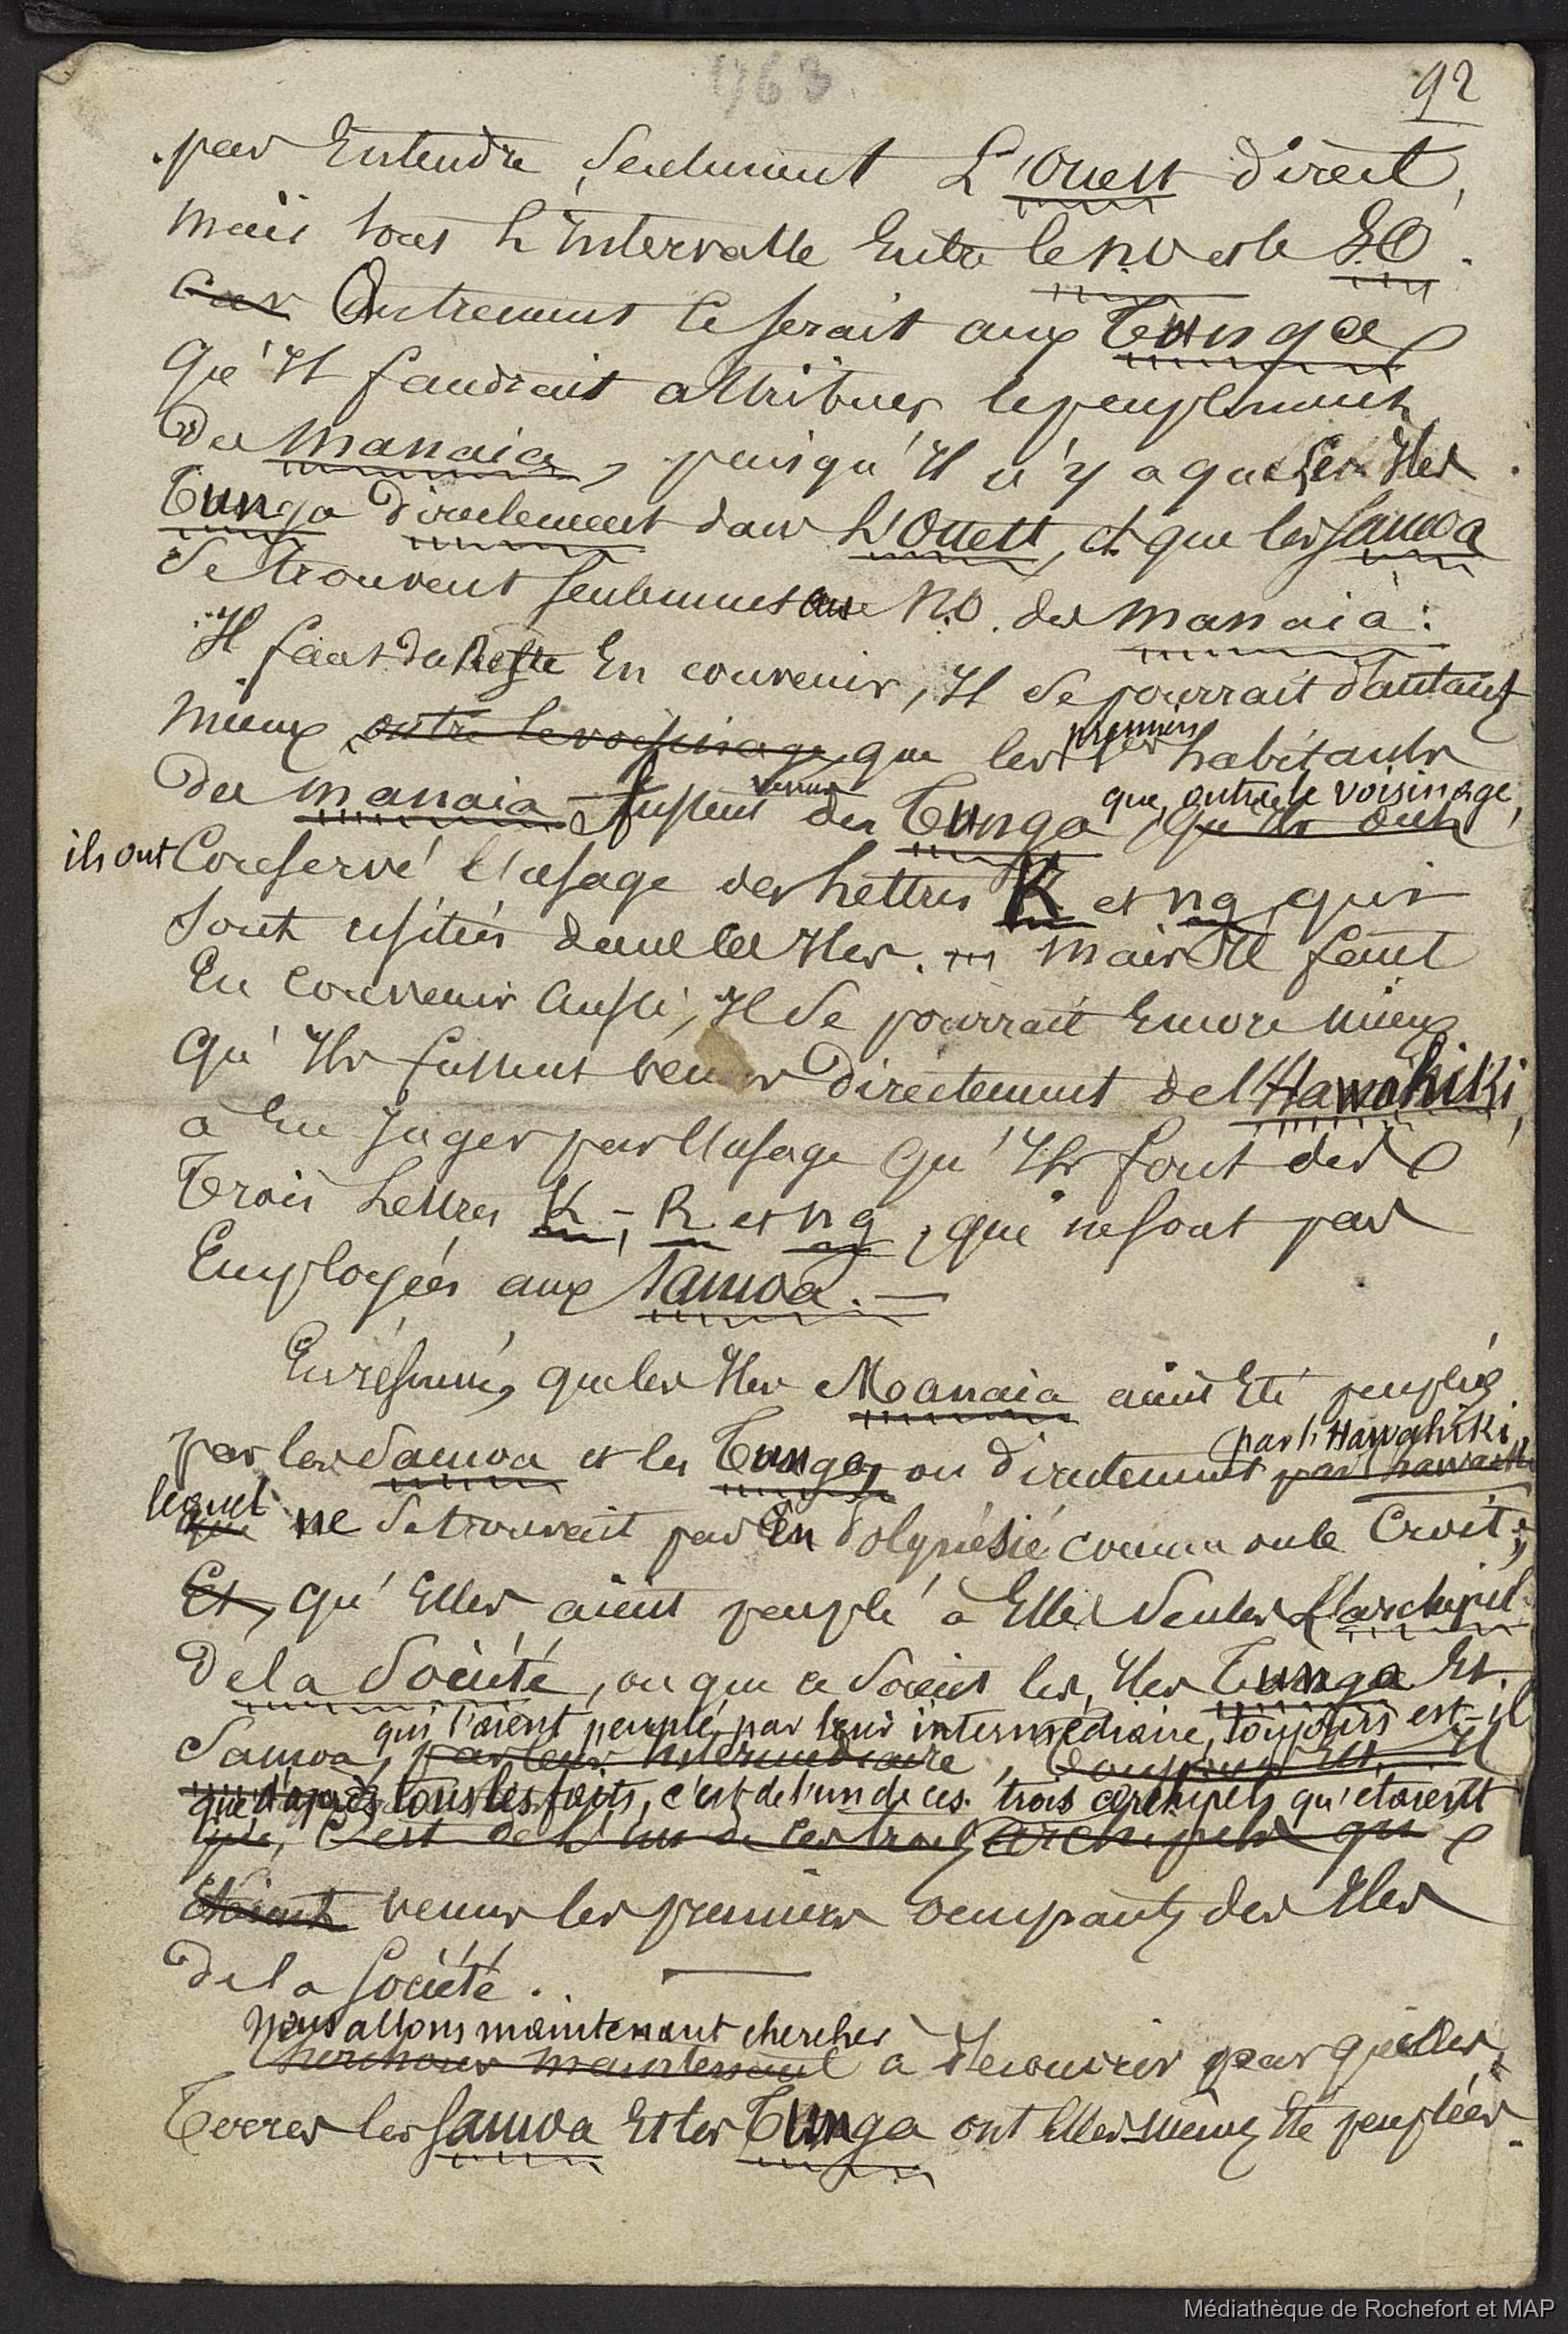 1763
92
pas Entendre seulement L'Ouest direct,
mais tout L'Intervalle Entre le N.O et le S.O.
car Autrement ce serait aux Tunga
qu'Il faudrait attribuer le peuplement
des Manaia, puisqu'Il n'y a que les Iles
Tunga directement dans L'Ouest, et que les Samoa
se trouvent seulement au N.O. des Manaia.
Il faut du Reste En convenir, Il se pourrait d'autant
premiers
mieux outre le voisinage que les 1ers habitants
venus que, outre le voisinage,
des Manaia fussent des Tunga, qu'Ils ont
ils ont Conservé l'usage des Lettres K et ng qui
sont usitées dans ces Iles. Mais Il faut
En convenir aussi, Il se pourrait Encore mieux
qu'Ils fussent venus directement de l'Hawahiki,
à En juger par l'usage qu'Ils font des
Trois Lettres K, R et ng, qui ne sont pas
Employées aux Samoa. —
En résumé, que les Iles Manaia aient Eté peuplées
par l'Hawahiki,
par les Samoa et les Tunga, ou directement par
lequel
que ne se trouvait pas En Polynésie comme on le Croit;
Et, qu'Elles aient peuplé à Elles Seules L'archipel
de la Société, ou que ce Soient les Iles Tunga Et
qui l'aient peuplé par leur intermédiaire, toujours est-il
Samoa, par leur Intermédiaire, Toujours Est-Il
que d'après tous les faits, c'est de l'un de ces trois archipels qu'étaient
que, C'est de L'un de ces trois archipels qu'
Etaient venus les premiers occupants des Iles
de la Société.
Nous allons maintenant chercher
Cherchons maintenant à découvrir par quelles
Terres les Samoa Et les Tunga ont Elles-mêmes Eté peuplées.
Médiathèque de Rochefort et MAP